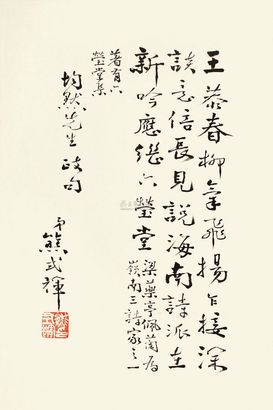 王恭春柳氣飛揚乍接深
談意倍長見說海南詩派在
新吟應繼六瑩堂
梁藥亭佩蘭為
嶺南三詩家之一
著有六
瑩堂集
均然先生政句
弟熊式輝